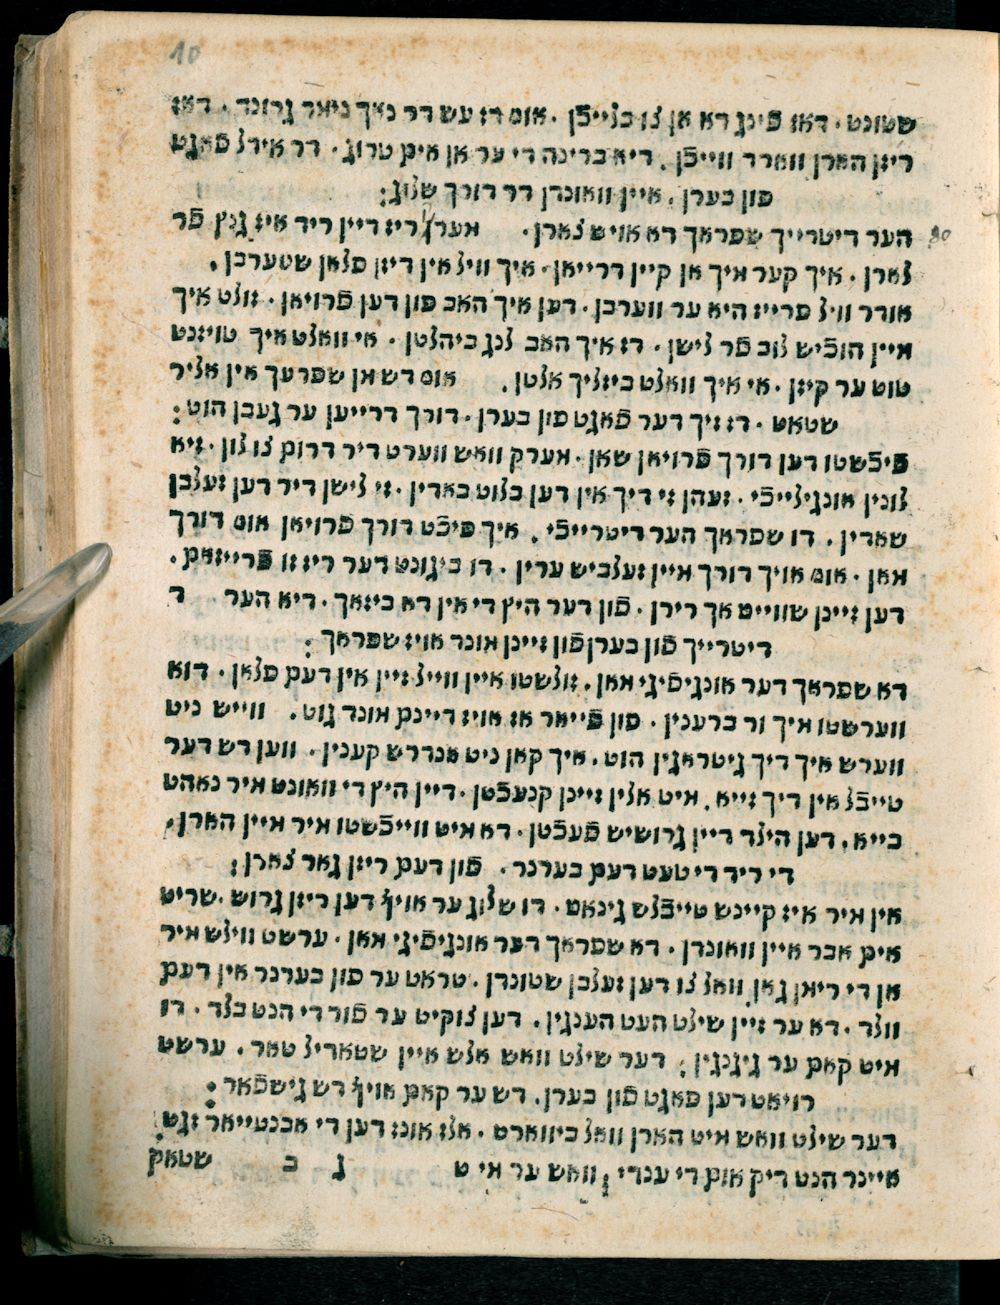 10
שטונט . דאז פינג דא אן צו בלייבֿן . אום דז עש דר נאך ניאר גרונד . דאז
ריזן הארן ווארד ווייבֿן . דיא ברינה די ער אן אים טרוג . דר אידל פֿאגט
פון בערן . איין וואונדן דר דורך שלוג :
הער דיטרייך שפראך דא אויש צארן . אערן ריז דיין ריד איז גנץ פֿר
80
לארן . איך קער איך אן קיין דרייאן . איך וויל אין דיזן פלאן שטערבן .
אודר וויל פרייז היא ער ווערבן . דען איך האב פון דען פֿרויאן . זולט איך
איין הובֿיש לוב פֿר לישן . דז איך האב לנג ביהלטן . אי וואלט איך טויזנט
טוט ער קיזן . אי איך וואלט ביזליך אלטן . אום דש אן שפרעך אין אליר
שטאט . דז זיך דער פֿאגט פון בערן . דורך דרייען ער געבן הוט :
פֿיכֿשטו דען דורך פֿרויאן שאן . אערק וואש ווערט דיר דרום צו לון . זיא
לונין אונגילייבֿי . זעהן זי דיך אין דען בלוט באדין . זי לישן דיר דען זעלבן
שאדין . דו שפראך הער דיטרייבֿי . איך פיכֿט דורך פֿרויאן אום דורך
אאן . אום אויך דורך איין זעלביש ערין . דו ביגונט דער ריז זו פֿרייזאם .
דען זיינן שווייס אך רירן . פֿון דער היץ די אין דא ביזאך . דיא הער ד
דיטרייך פֿון בערן פֿון זיינן אונד אויז שפראך :
דא שפראך דער אונגיפֿיגי אאן . זולשטו איין ווייל זיין אין דעם פלאן . דוא
ווערשטו איך ור ברענין . פון פֿייאר אז אויז דיינם אונד גוט . ווייש ניט
ווערש איך דיך גיטראגין הוט . איך קאן ניט אנדרש קענין . ווען דש דער
טייבֿל אין דיך זייא . איט אלין זיינן קנעכֿטן . דיין היץ די וואונט איר נאהט
בייא . דען הילד דיין גרושיש פֿעכֿטן . דא איט ווייבֿשטו איר איין הארן .
די ריד די טעט דעם בערנר . פֿון דעם ריזן גאר צארן :
אין איר איז קיינש טייבֿלש גינאס . דו שלוג ער אויף דען ריזן גרוש . שריט
אים אבר איין וואונדן . דא שפראך דער אונגיפֿיגי אאן . ערשט ווילש איר
אן די ריאן גאן . וואל צו דען זעלבן שטונדן . טראט ער פון בערנר אין דעם
וולד . דא ער זיין שילט העט הענגין . דען צוקיט ער פֿור די הנט בלד . דו
איט קאם ער גיגנגין : דער שילט וואש אלש איין שטאדיל טאר . ערשט
רויאט דען פאגט פֿון בערן . דש ער קאם אויף דש גישפֿאר :
דער שילט וואש איט הארן וואל ביווארט . אלז אונז דען די אבנטייאר זגט .
איינר הנט דיק אום די ענדי : וואש ער אי ט ג ב שטאק